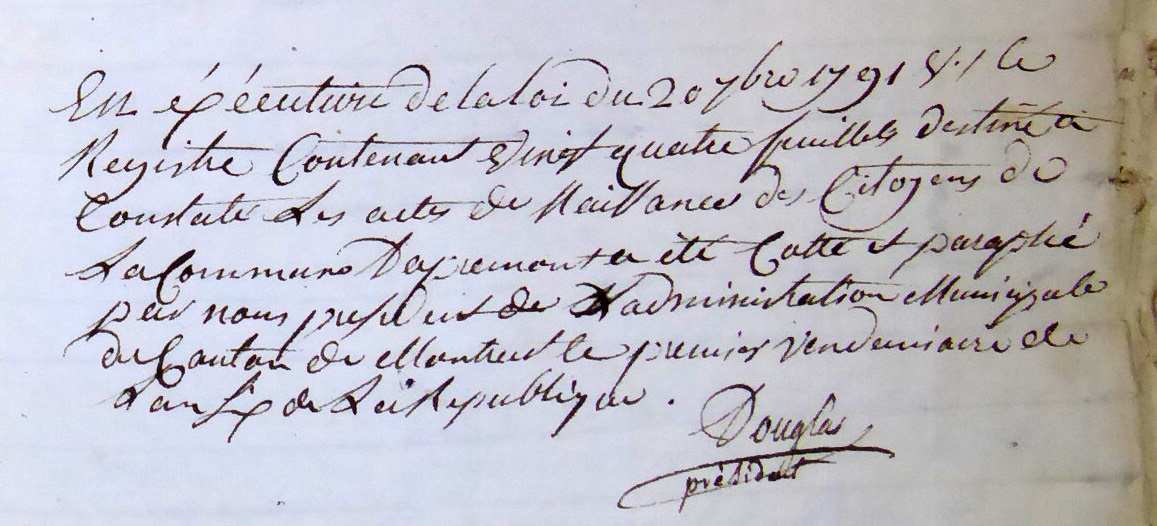 En éxécution de la loi du 20 7bre 1791 V.S le
Registre Contenant Vingt quatre feuilles destiné à
Constater Les actes de Naissances des Citoyens de
La Commune Dapremont a été Cotté et paraphé
par nous president de L'administration Municipale
du Canton de Montreal le premier vendemiaire de
Lan Six de La Republique.
Douglas
président